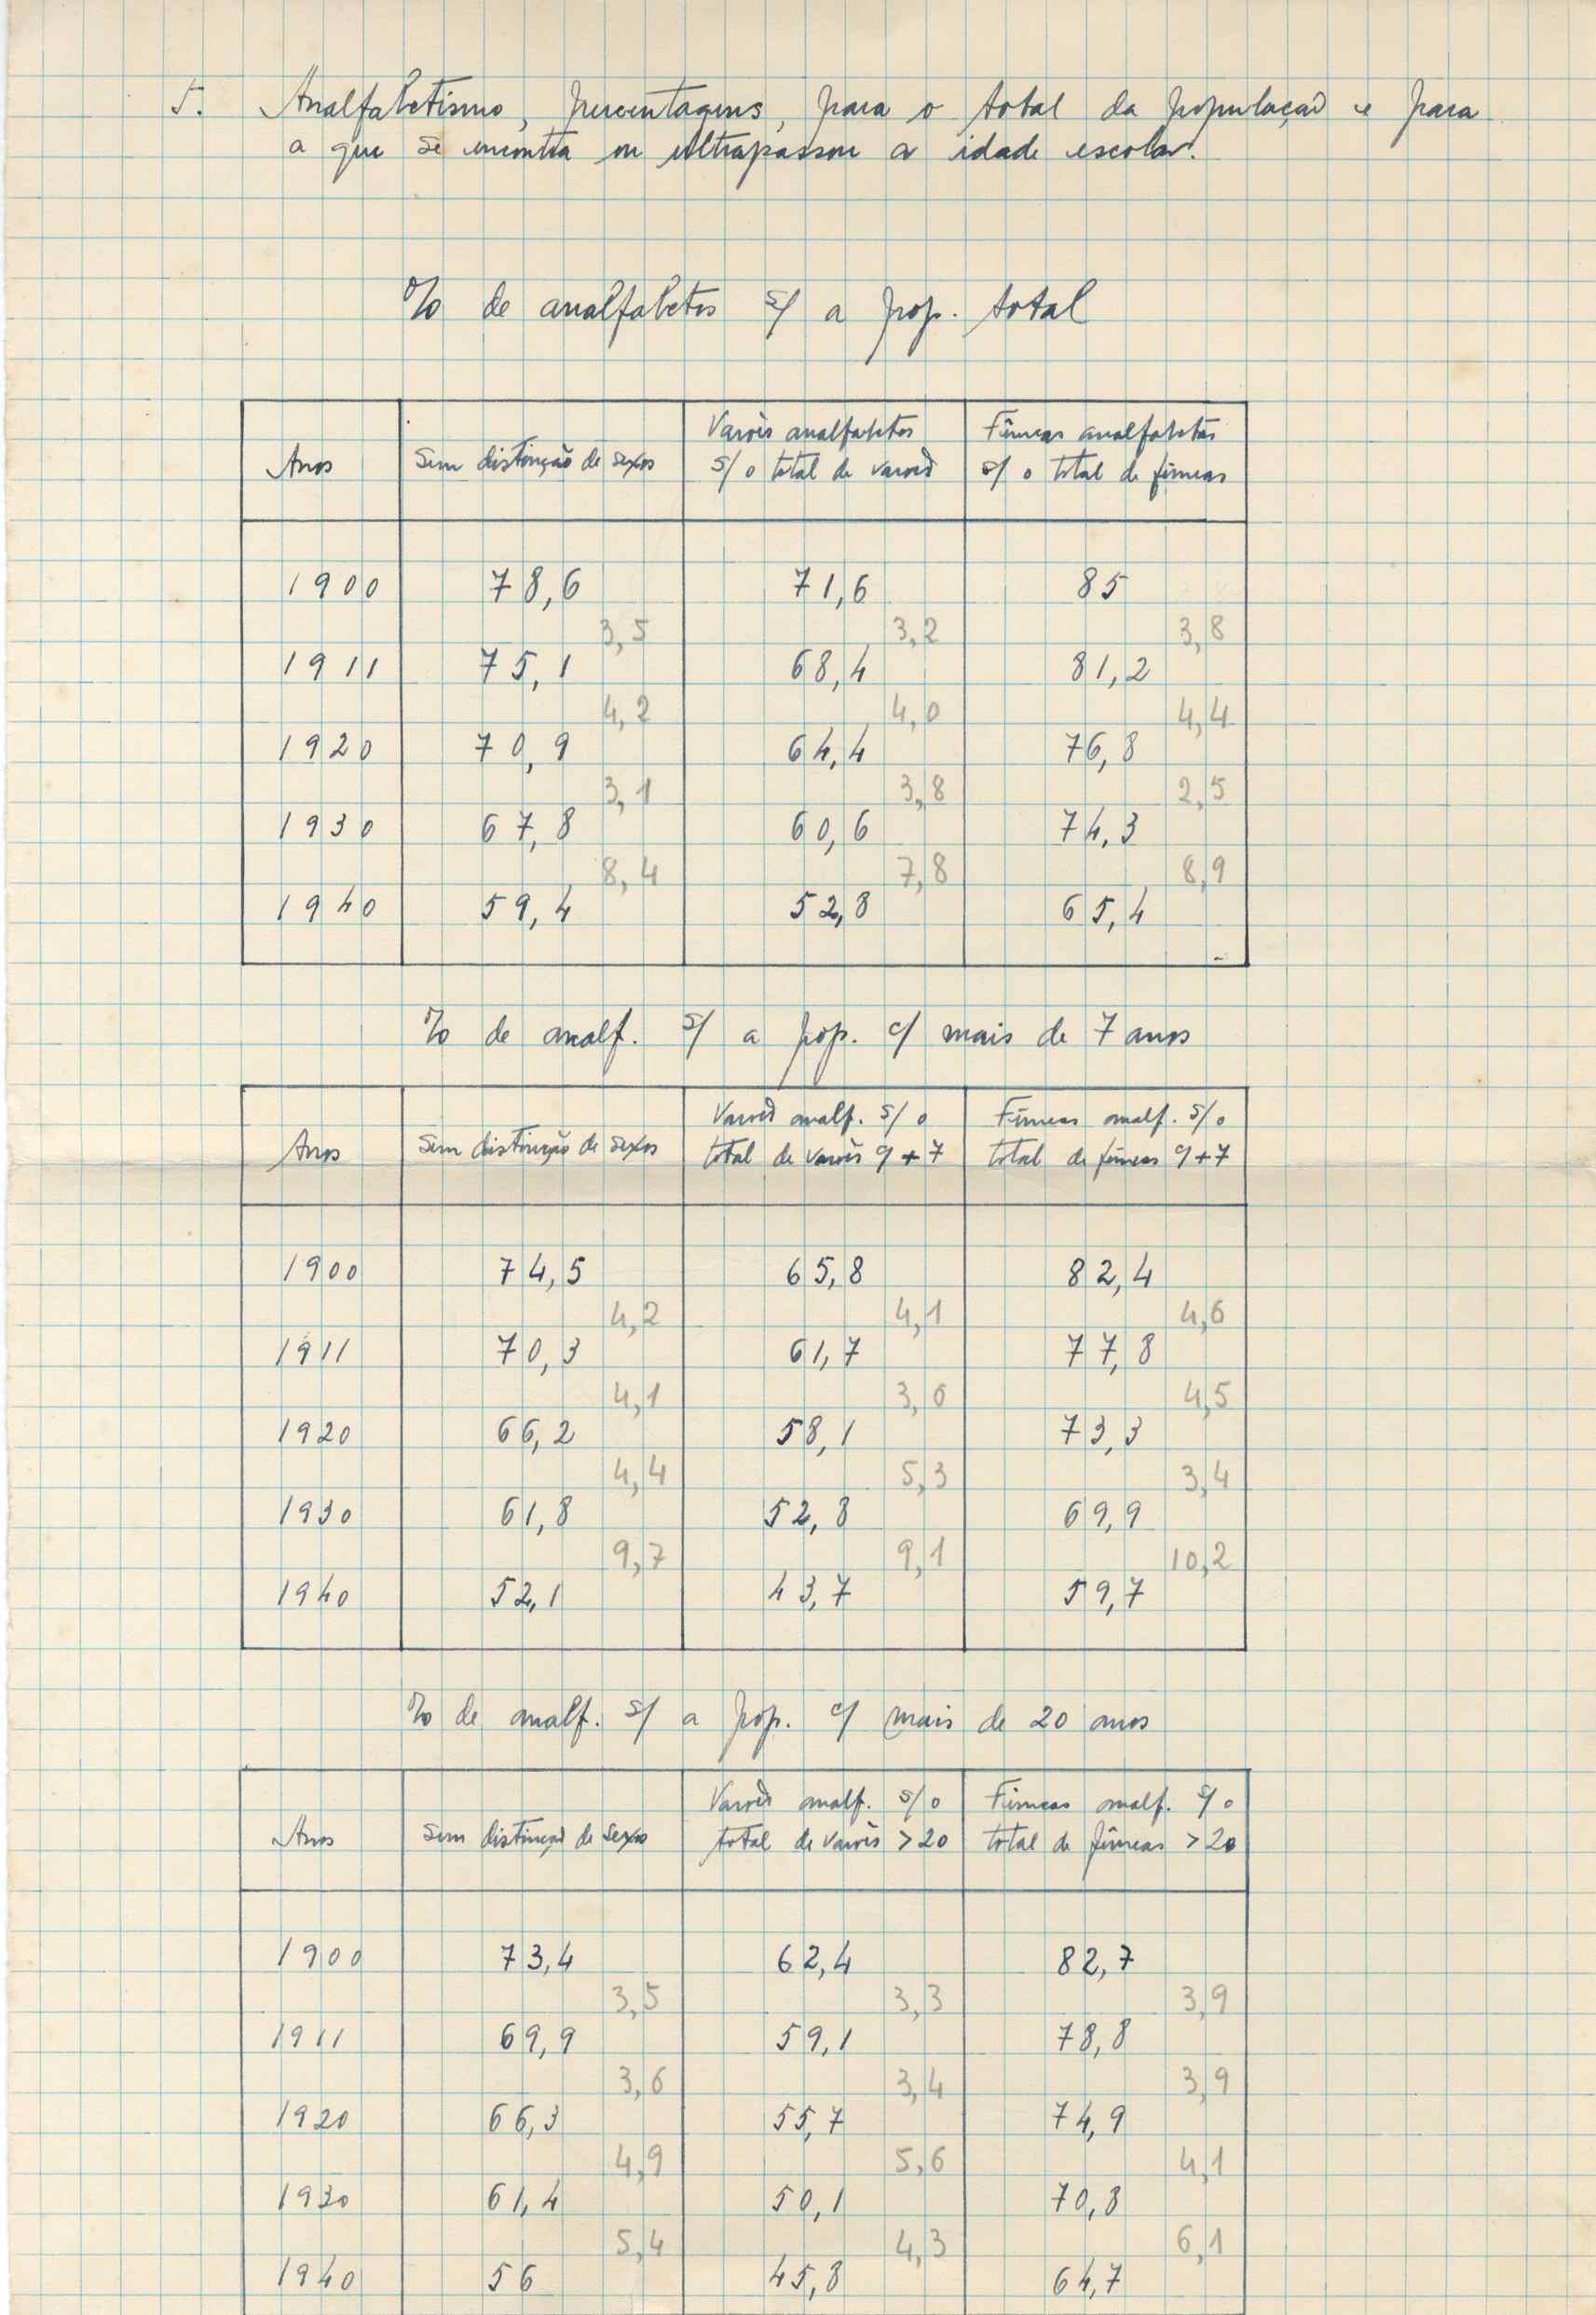 5. Analfabetismo, percentagens, para o total da população e para
a que se encontra ou ultrapassou a idade escolar.
% de analfabetos s/ a pop. total
Anos Sem distinção de sexos Varões analfabetos s/ o total de varões Fêmeas analfabetas s/ o total de fêmeas
1900 78,6 71,6 85
3,5 3,2 3,8
1911 75,1 68,4 81,2
4,2 4,0 4,4
1920 70,9 64,4 76,8
3,1 3,8 2,5
1930 67,8 60,6 74,3
8,4 7,8 8,9
1940 59,4 52,8 65,4
% de analf. s/ a pop. c/ mais de 7 anos
Anos Sem distinção de sexos Varões analf. s/ o total de varões c/ + 7 Fêmeas analf. s/ o total de fêmeas c/ + 7
1900 74,5 65,8 82,4
4,2 4,1 4,6
1911 70,3 61,7 77,8
4,1 3,6 4,5
1920 66,2 58,1 73,3
4,4 5,3 3,4
1930 61,8 52,8 69,9
9,7 9,1 10,2
1940 52,1 43,7 59,7
% de analf. s/ a pop. c/ mais de 20 anos
Anos Sem distinção de sexos Varões analf. s/ o total de varões > 20 Fêmeas analf. s/ o total de fêmeas > 20
1900 73,4 62,4 82,7
3,5 3,3 3,9
1911 69,9 59,1 78,8
3,6 3,4 3,9
1920 66,3 55,7 74,9
4,9 5,6 4,1
1930 61,4 50,1 70,8
5,4 4,3 6,1
1940 56 45,8 64,7